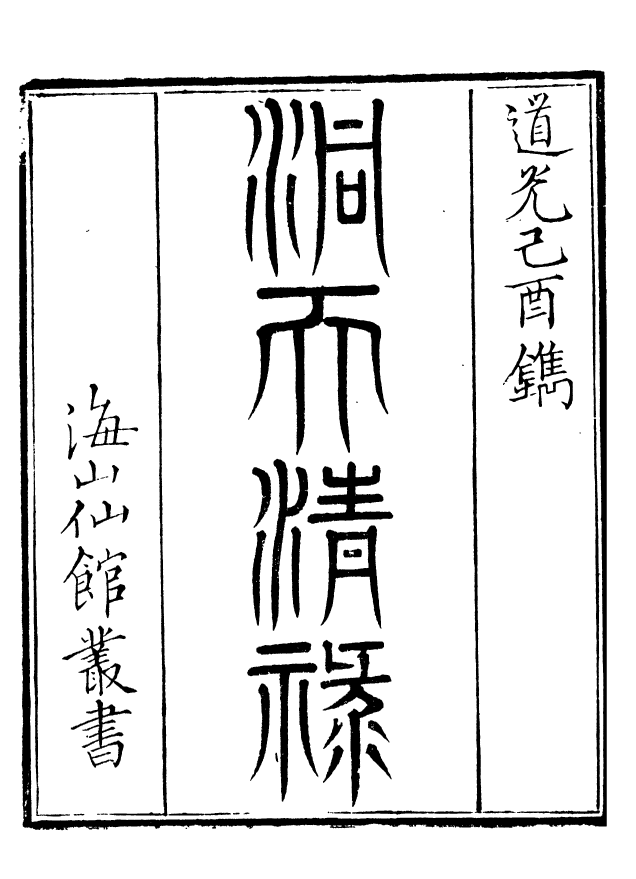 道光己酉鐫
洞天清祿
海山仙館叢書